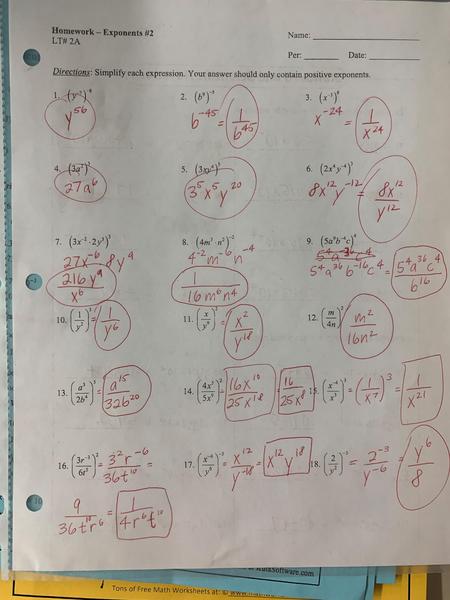 Homework – Exponents #2
LT# 2A
Name:
Per: Date:
Directions: Simplify each expression. Your answer should only contain positive exponents.
1. y^56
2. (b^9)^-5 b^-45 = 1/b^45
3. x^-24 = 1/x^24
4. (3a^2)^3 27a^6
5. 3^5x^5y^20
6. (2x^4y^-4)^3 8x^12y^-12 = 8x^12/y^12
7. (3x^-2·2y^3)^3 27x^-6·8y^9
216y^9/x^6
8. (4m^3·n^2)^-2 4^-2m^-6n^-4
1/16m^6n^4
9. (5a^9b^-4c)^4
5^4a^36b^-16c^4 = 5^4a^36c^4/b^16
10. (1/y^2)^3 = 1/y^6
11. x^2/y^18
12. (m/4n)^2 m^2/16n^2
13. (a^3/2b^4)^5 = a^15/32b^20
14. 16x^10/25x^18 = 16/25x^8
15. (1/x^7)^3 = 1/x^21
16. (3r^-3/6t^5)^2 = 3^2r^-6/36t^10 =
9/36t^10r^6 = 1/4r^6t^10
17. = x^12/y^-18 = x^12y^18
18. = 2^-3/y^-6 = y^6/8
Tons of Free Math Worksheets at: ©